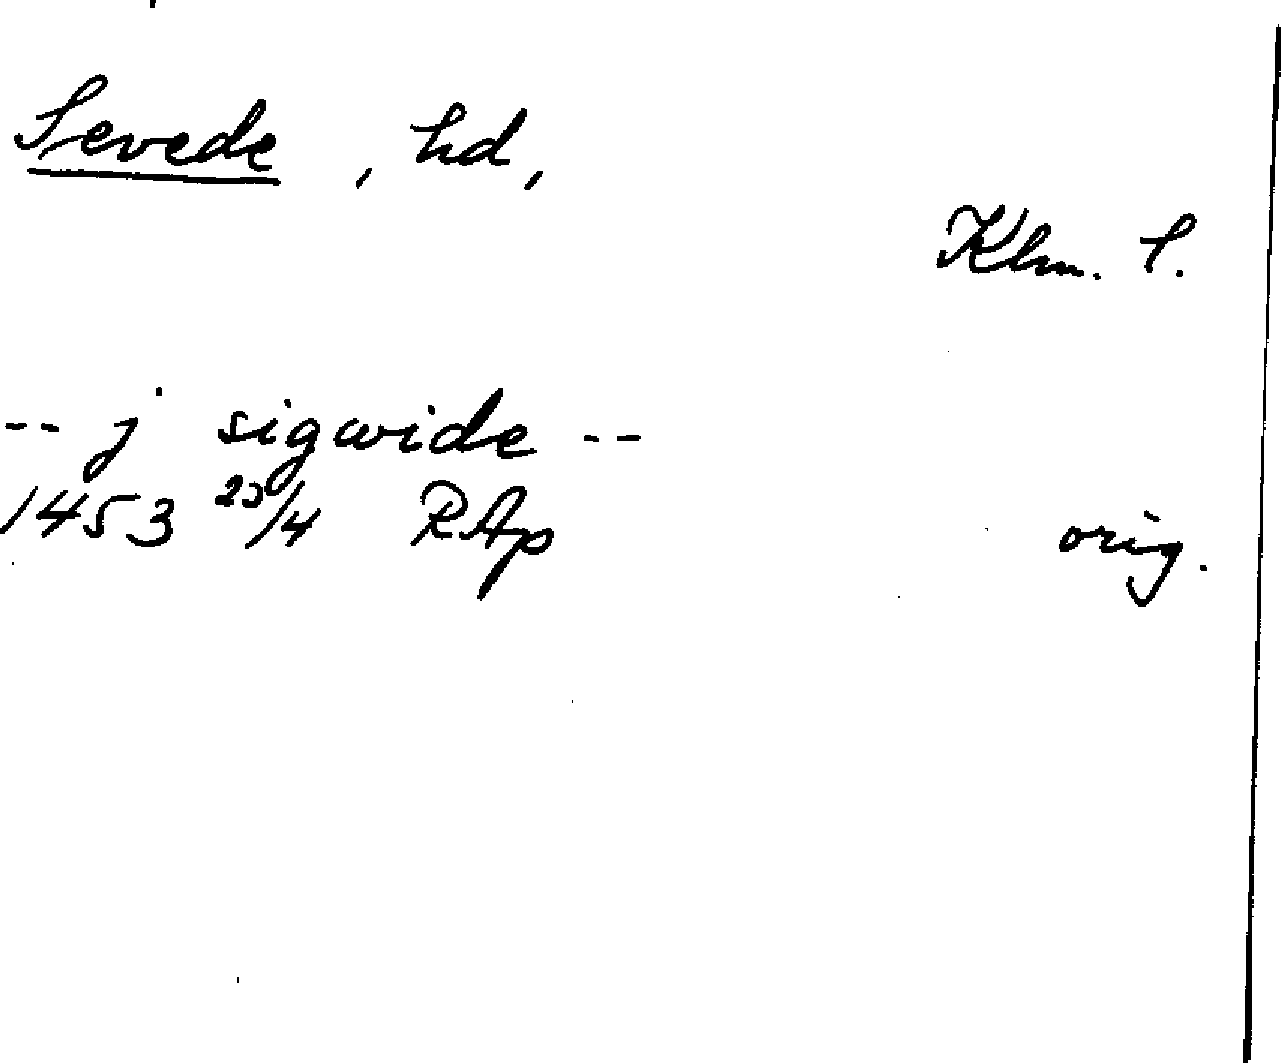 Sevede, hd,
Klm. l.
-- j sigwide --
1453 23/4 RAp orig.